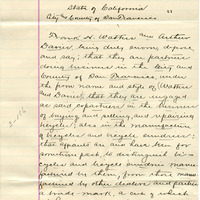 State of California
City and County of San Francisco } ss
Frank H. Watters and Arthur
Daniel being duly sworn depose
and say; that they are partners
doing business in the City and
County of San Francisco, under
the firm name and style of Watters
and Daniel, that they are engaged
as said copartners in the business
of buying and selling and repairing
bicycles, also in the manufacture
of bicycles and bicycle sundries;
that affiants are and have been for
sometime past, to distinguish bi-
cycles and bicycle sundries manu-
factured by them, from those manu-
factured by other dealers and parties
a trade mark, a cut of which